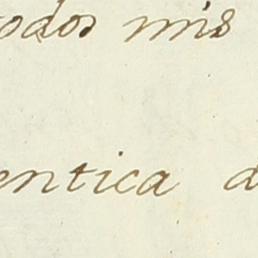 todos mis
entica d